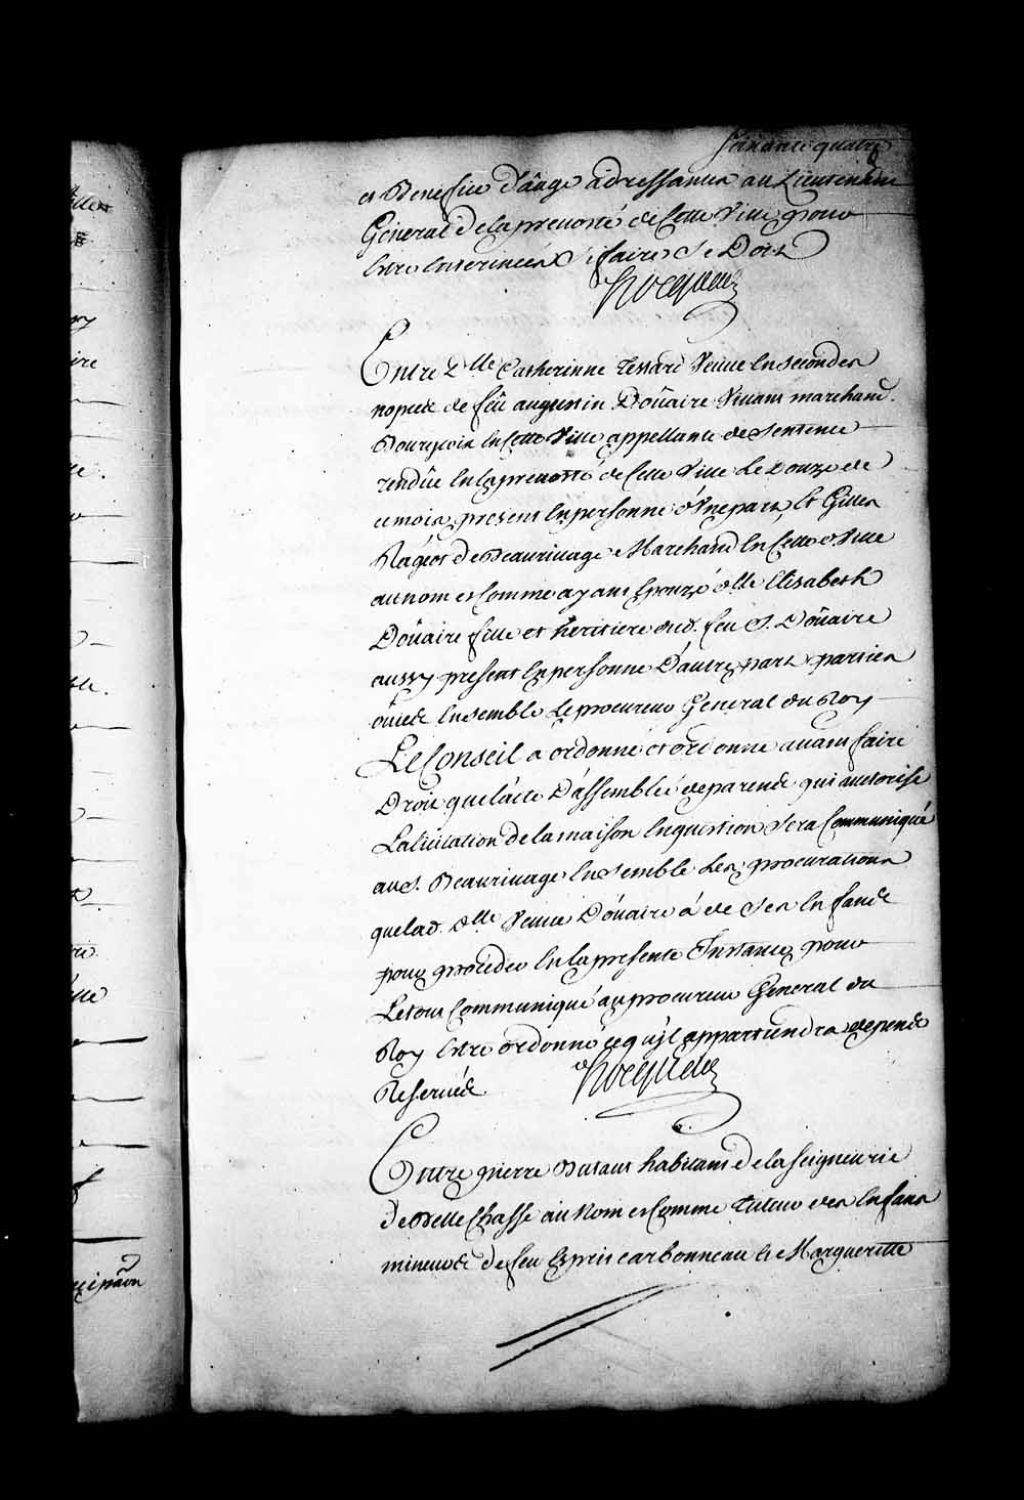 soixante quatre
et Benefice d'âage adressantes au Lieutenant
General de la prevosté de Cette Ville pour
Estre Enterinées Si faire Se Doit
Hocquart
Entre D.lle Catherinne Tessard Veuve En secondes
nopces de feu augustin Doüaire Vivant marchand
Bourgeois En Cette Ville appellante de Sentence
rendûe En la prevosté de Cette Ville Le Douze de
ce mois, present En personne d'Une part, Et Gilles
Rageot de Beaurivage Marchand En Cette Ville
au nom et Comme ayant Epouzé d.lle Elisabeth
Doüaire fille et heritiere dud. feu S. Doüaire
aussy present En personne D'autre part parties
oüies Ensemble Le procureur General du Roy
Le Conseil a ordonné et ordonne avant faire
Droit que lacte D'assemblée de parens qui autorise
La licitation de la maison En question Sera Communiqué
au S. Beaurivage Ensemble Les procurations
que lad. d.lle Veuve Doüaire a de Ses Enfans
pour proceder En la presente Instance, pour
Le tout Communiqué au procureur General du
Roy Estre ordonné ce qu'jl appartiendra depens
Reservés
Hocquart
Entre pierre habitant de la Seigneurie
de Belle Chasse au Nom et Comme Tuteur des Enfans
mineurs de feu Esprit carbonneau et Margueritte